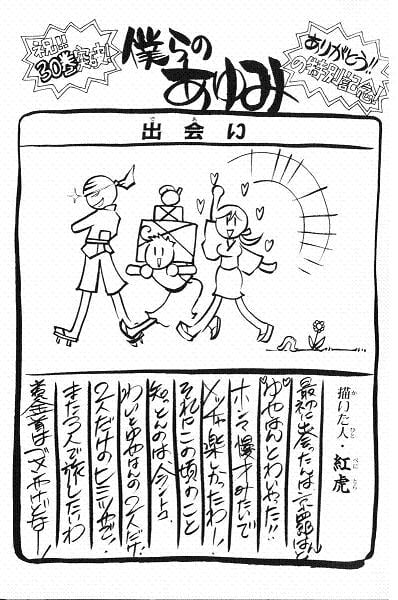 祝!!
30巻突破!
僕らの
あゆみ
ありがとう!!
の特別記念
出会い
描いた人・紅虎
ゆやはんとわいやった!!
ホンマ、漫才みたいで
メッチャ楽しかったわー!
それにこの頃のこと
知っとんのは今ントコ
わいとゆやはんの2人だけ。
2人だけのヒミツやで!
また3人で旅したいわ
賞金首はゴメンやけどなー!